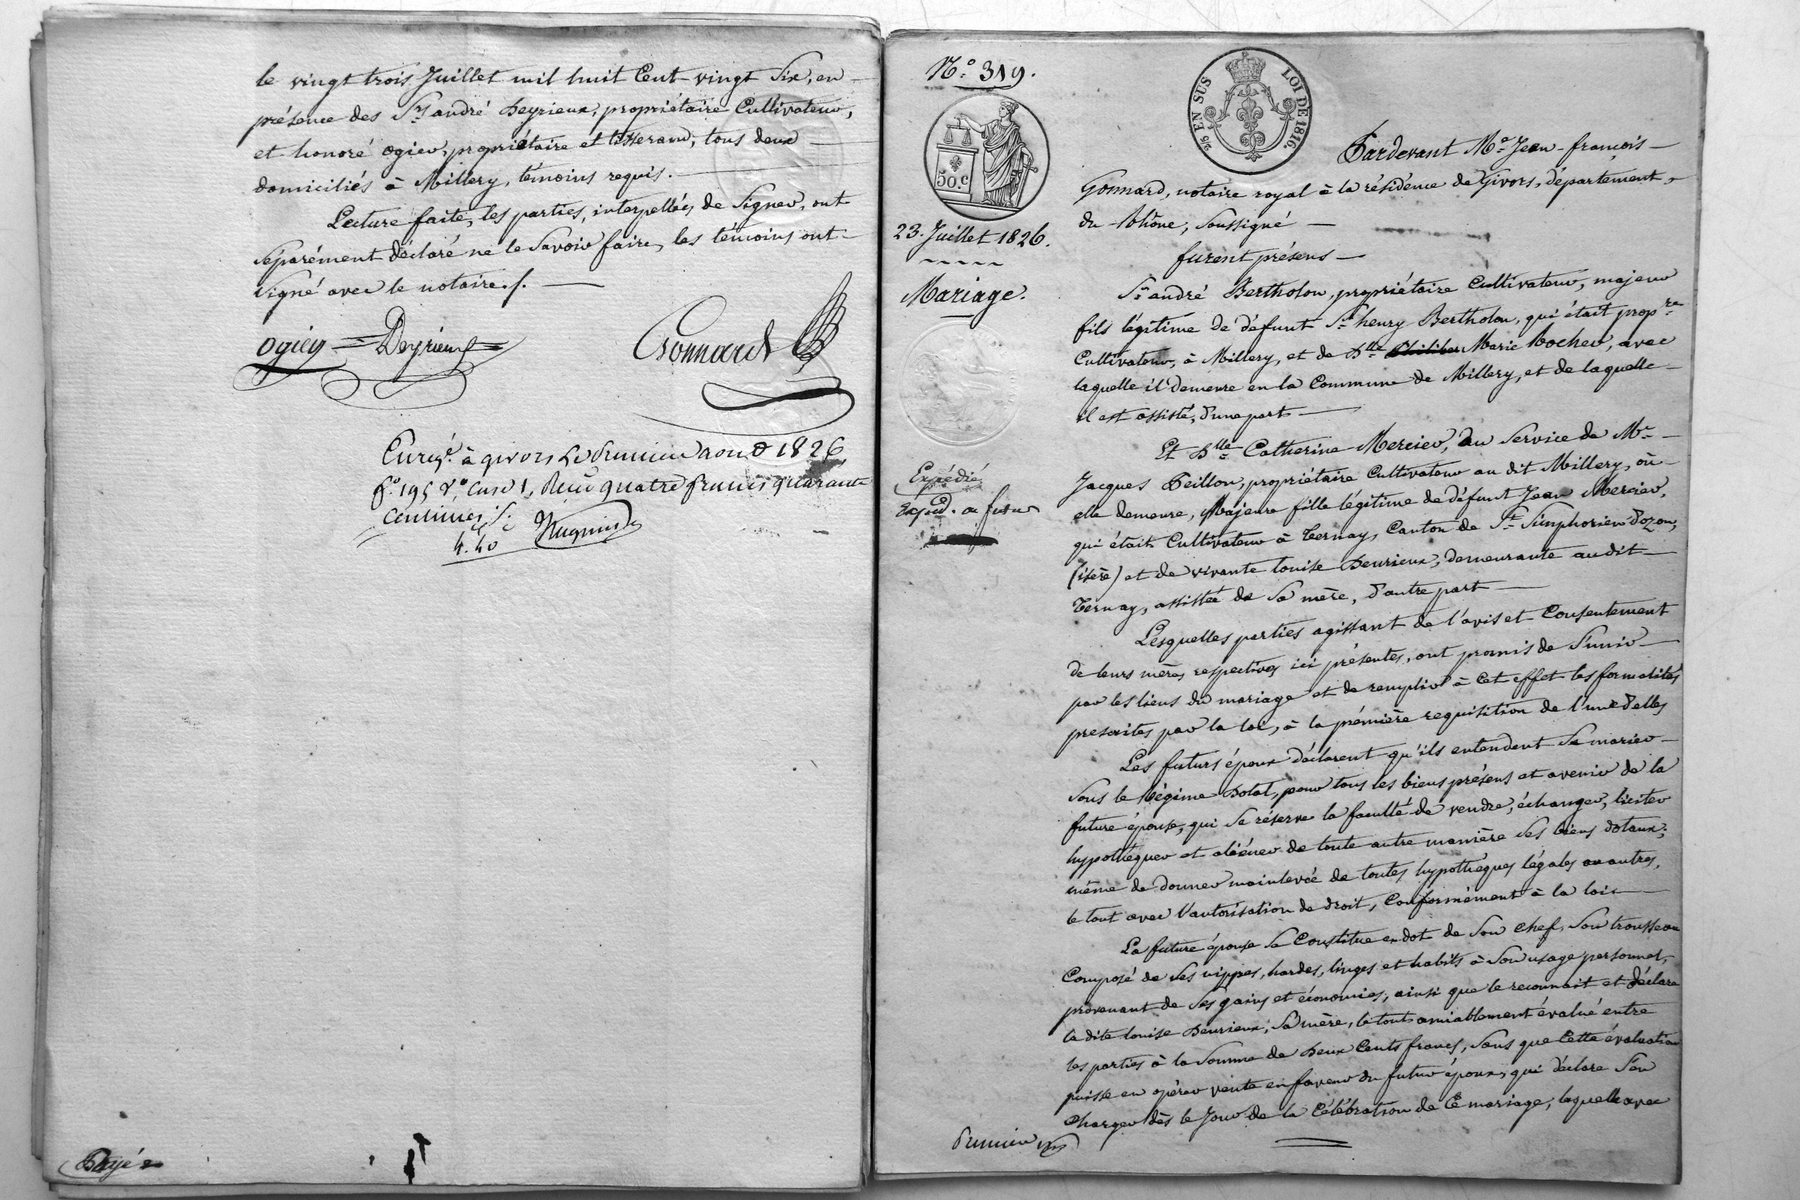 le vingt trois Juillet mil huit Cent vingt Six, en
présence des Srs andré Deyrieux, propriétaire Cultivateur,
et honoré ogier, propriétaire et tisserand, tous deux
domiciliés à Millery, témoins requis.
Lecture faite, les parties, interpellées de Signer, ont
Séparément déclaré ne le Savoir faire, les témoins ont
signé avec le notaire./.
ogier Deyrieux Gonnard
Enregé. à givors Le premier aout 1826
fo. 195 Vo. Case 1, Reçu quatre francs quarante
centimes
4.40
Payé
No. 319.
50.c
25c EN SUS LOI DE 1816.
23. Juillet 1826.
Mariage.
Expédié
Expéd. au futur
Pardevant Me. Jean-françois
Gonnard, notaire royal à la résidence de Givors, département
du Rhône, soussigné
furent présens
Sr. andré Bertholon, propriétaire Cultivateur, majeur
fils légitime de défunt Sr. henry Bertholon, qui était propre.
Cultivateur, à Millery, et de Dlle. Marie Rocher, avec
laquelle il demeure en la Commune de Millery, et de laquelle
il est assisté, d'une part
Et Dlle. Catherine Mercier, au Service de Mr.
Jacques Peillon, propriétaire Cultivateur au dit Millery, où
elle demeure, Majeure fille légitime de défunt Jean Mercier,
qui était Cultivateur à Ternay, Canton de St. Simphorien d'ozon,
(isère) et de vivante Louise Deurieux, demeurante au dit
Ternay, assistée de Sa mère, d'autre part
Lesquelles parties agissant de l'avis et Consentement
de leurs mères respectives ici présentes, ont promis de S'unir
par les liens du mariage et de remplir à Cet effet les formalités
prescrites par la loi, à la première requisition de l'une d'elles
Les futurs époux déclarent qu'ils entendent Se marier
Sous le Régime Dotal, pour tous les biens présens et avenir de la
future épouse, qui Se réserve la faculté de vendre, échanger, liciter
hypothéquer et aliéner de toute autre manière Ses biens dotaux;
même de donner mainlevée de toutes hypothéques légales ou autres,
le tout avec l'autorisation de droit, Conformément à la loi
La future épouse Se Constitue en dot de Son Chef, Son trousseau
Composé de Ses nippes, hardes, linges et habits à Son usage personnel,
provenant de Ses gains et économies, ainsi que le reconnait et déclare
la dite Louise Deurieux, Sa mère, le tout amiablement évalué entre
les parties à la Somme de Deux Cents francs, Sans que Cette évaluation
puisse en opérer vente en faveur du futur époux, qui déclare S'en
Charger dès le Jour de la Célébration de Ce mariage, laquelle avec